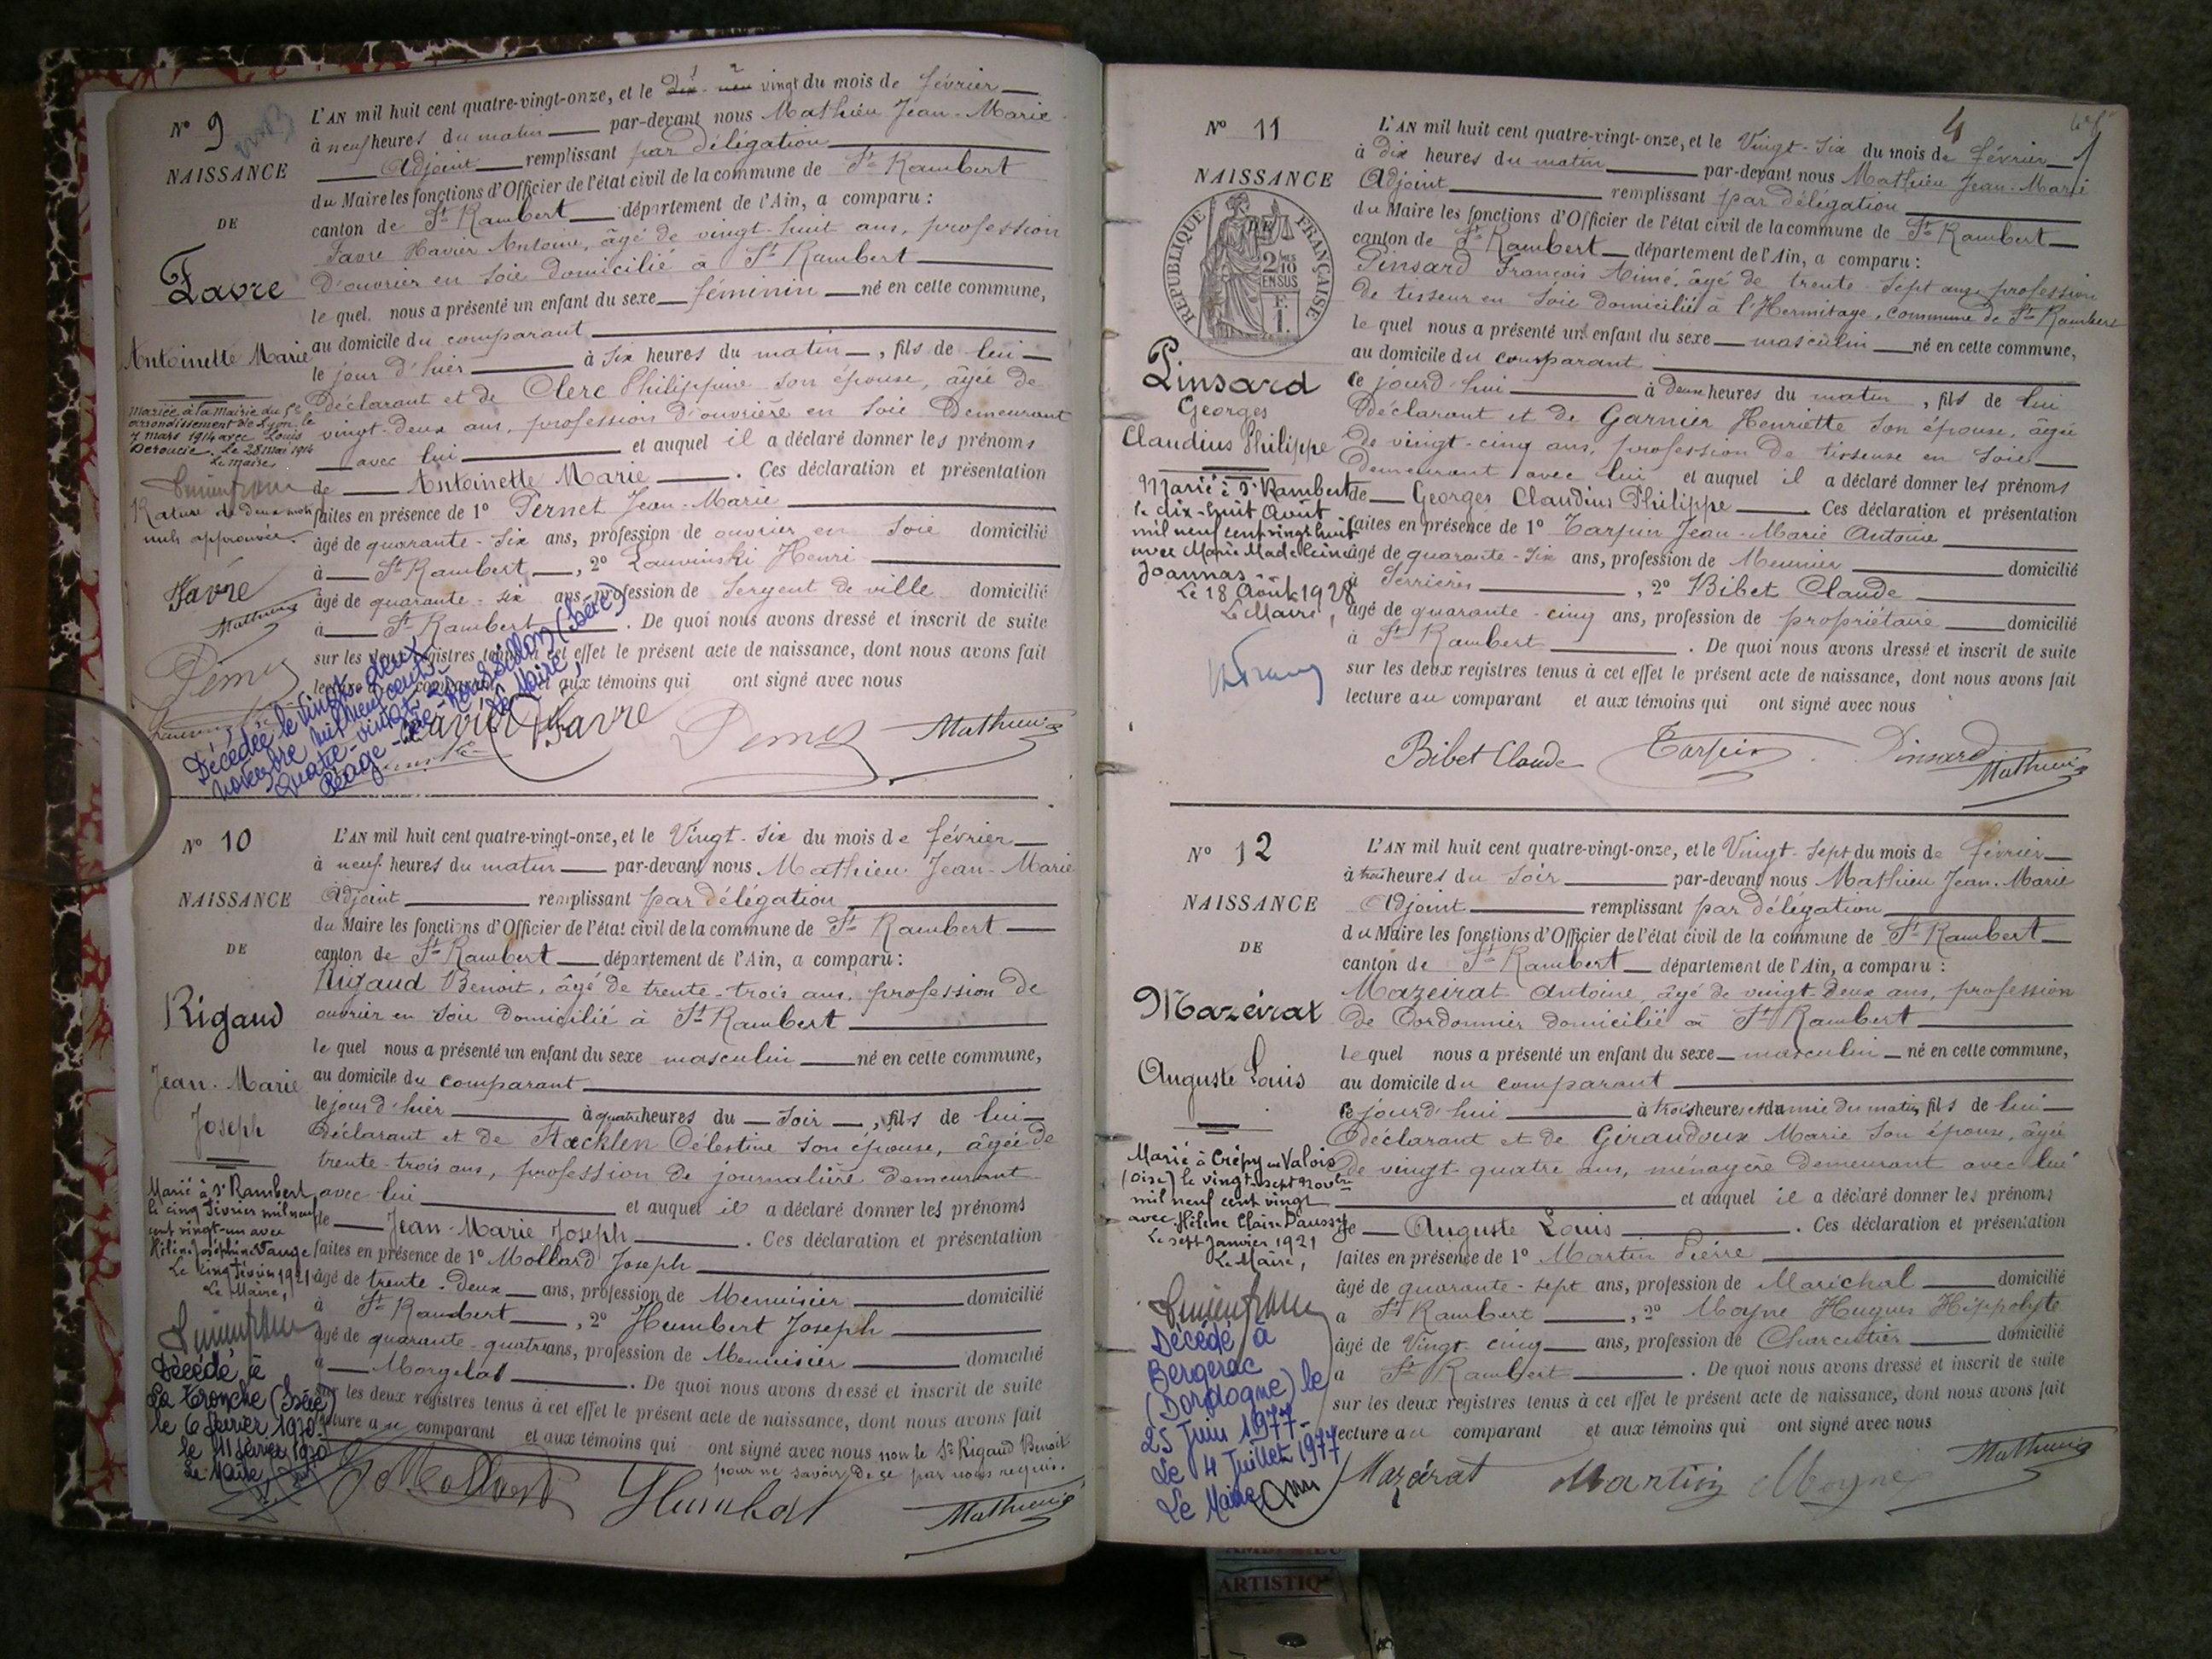 Nº 9
NAISSANCE
DE
Favre
Antoinette Marie
Mariée à la Mairie du 5e
arrondissement de Lyon le
7 mars 1914 avec Louis
Le 28 Mai 1914
Le Maire
Rature de deux mots
nuls approuvée.
Favre
Mathieu
L'AN mil huit cent quatre-vingt-onze, et le dix-neuf vingt du mois de février
à neuf heures du matin par-devant nous Mathieu Jean-Marie
Adjoint remplissant par délégation
du Maire les fonctions d'Officier de l'état civil de la commune de St Rambert
canton de St Rambert département de l'Ain, a comparu :
Favre Xavier Antoine, âgé de vingt-huit ans, profession
d'ouvrier en soie domicilié à St Rambert
le quel nous a présenté un enfant du sexe féminin né en cette commune,
au domicile du comparant
le jour d'hier à six heures du matin, fils de lui
déclarant et de Clerc Philippine son épouse, âgée de
vingt-deux ans, profession d'ouvrière en soie demeurant
avec lui et auquel il a déclaré donner les prénoms
de Antoinette Marie. Ces déclaration et présentation
faites en présence de 1º Pernet Jean-Marie
âgé de quarante-six ans, profession de ouvrier en soie domicilié
à St Rambert, 2º Henri
âgé de quarante-six ans, profession de Sergent de ville domicilié
à St Rambert. De quoi nous avons dressé et inscrit de suite
sur les deux registres tenus à cet effet le présent acte de naissance, dont nous avons fait
lecture au comparant et aux témoins qui ont signé avec nous
Décédée le vingt-deux
novembre mil neuf cent
quatre-vingt
Péage-de-Roussillon (Isère)
Le Maire,
Xavier Favre
Mathieu
Nº 10
NAISSANCE
DE
Rigaud
Jean-Marie
Joseph
Marié à St Rambert
le cinq février mil neuf
cent vingt-un avec
Hélène Joséphine Tange
Le cinq février 1921
Le Maire,
Décédé à
La Tronche (Isère)
le 6 février 1970.
le 11 février 1970
Le Maire
L'AN mil huit cent quatre-vingt-onze, et le Vingt-six du mois de février
à neuf heures du matin par-devant nous Mathieu Jean-Marie
Adjoint remplissant par délégation
du Maire les fonctions d'Officier de l'état civil de la commune de St Rambert
canton de St Rambert département de l'Ain, a comparu :
Rigaud Benoit, âgé de trente-trois ans, profession de
ouvrier en soie domicilié à St Rambert
le quel nous a présenté un enfant du sexe masculin né en cette commune,
au domicile du comparant
le jour d'hier à quatre heures du soir, fils de lui
déclarant et de Stoecklen Célestine son épouse, âgée de
trente-trois ans, profession de journalière demeurant
avec lui et auquel il a déclaré donner les prénoms
de Jean-Marie Joseph. Ces déclaration et présentation
faites en présence de 1º Mollard Joseph
âgé de trente-deux ans, profession de Menuisier domicilié
à St Rambert, 2º Humbert Joseph
âgé de quarante-quatre ans, profession de Menuisier domicilié
à Morgelas. De quoi nous avons dressé et inscrit de suite
sur les deux registres tenus à cet effet le présent acte de naissance, dont nous avons fait
lecture au comparant et aux témoins qui ont signé avec nous non le Sr Rigaud Benoit
pour ne savoir de ce par nous requis.
J Mollard
J Humbert
Mathieu
4
Nº 11
NAISSANCE
DE
REPUBLIQUE FRANÇAISE
2/10 EN SUS
Pinsard
Georges
Claudius Philippe
Marié à St Rambert
le dix-huit Août
mil neuf cent vingt huit
avec Marie Madeleine
Joannas.
Le 18 Août 1928
Le Maire,
L'AN mil huit cent quatre-vingt-onze, et le Vingt-six du mois de février
à dix heures du matin par-devant nous Mathieu Jean-Marie
Adjoint remplissant par délégation
du Maire les fonctions d'Officier de l'état civil de la commune de St Rambert
canton de St Rambert département de l'Ain, a comparu :
Pinsard François Aimé, âgé de trente-sept ans, profession
de tisseur en soie domicilié à l'Hermitage, commune de St Rambert
le quel nous a présenté un enfant du sexe masculin né en cette commune,
au domicile du comparant
ce jourd'hui à deux heures du matin, fils de lui
déclarant et de Garnier Henriette son épouse, âgée
de vingt-cinq ans, profession de tisseuse en soie
demeurant avec lui et auquel il a déclaré donner les prénoms
de Georges Claudius Philippe. Ces déclaration et présentation
faites en présence de 1º Tarpin Jean-Marie Antoine
âgé de quarante-six ans, profession de Meunier domicilié
à Serrières, 2º Bibet Claude
âgé de quarante-cinq ans, profession de propriétaire domicilié
à St Rambert. De quoi nous avons dressé et inscrit de suite
sur les deux registres tenus à cet effet le présent acte de naissance, dont nous avons fait
lecture au comparant et aux témoins qui ont signé avec nous
Bibet Claude Tarpin Pinsard
Mathieu
Nº 12
NAISSANCE
DE
Mazeirat
Auguste Louis
Marié à Crépy en Valois
(Oise) le vingt sept novbre
mil neuf cent vingt
avec Hélène Claire Daussy
Le sept Janvier 1921
Le Maire,
Décédé à
Bergerac
(Dordogne) le
25 Juin 1977
Le 4 Juillet 1977
Le Maire
L'AN mil huit cent quatre-vingt-onze, et le Vingt-sept du mois de février
à trois heures du soir par-devant nous Mathieu Jean-Marie
Adjoint remplissant par délégation
du Maire les fonctions d'Officier de l'état civil de la commune de St Rambert
canton de St Rambert département de l'Ain, a comparu :
Mazeirat Antoine, âgé de vingt-deux ans, profession
de Cordonnier domicilié à St Rambert
le quel nous a présenté un enfant du sexe masculin né en cette commune,
au domicile du comparant
ce jourd'hui à trois heures et demie du matin, fils de lui
déclarant et de Giraudoux Marie son épouse, âgée
de vingt-quatre ans, ménagère demeurant avec lui
et auquel il a déclaré donner les prénoms
de Auguste Louis. Ces déclaration et présentation
faites en présence de 1º Martin Pierre
âgé de quarante-sept ans, profession de Maréchal domicilié
à St Rambert, 2º Moyne Hugues Hippolyte
âgé de Vingt cinq ans, profession de Charcutier domicilié
à St Rambert. De quoi nous avons dressé et inscrit de suite
sur les deux registres tenus à cet effet le présent acte de naissance, dont nous avons fait
lecture au comparant et aux témoins qui ont signé avec nous
Mazeirat Martin Moyne
Mathieu
ARTISTIQ